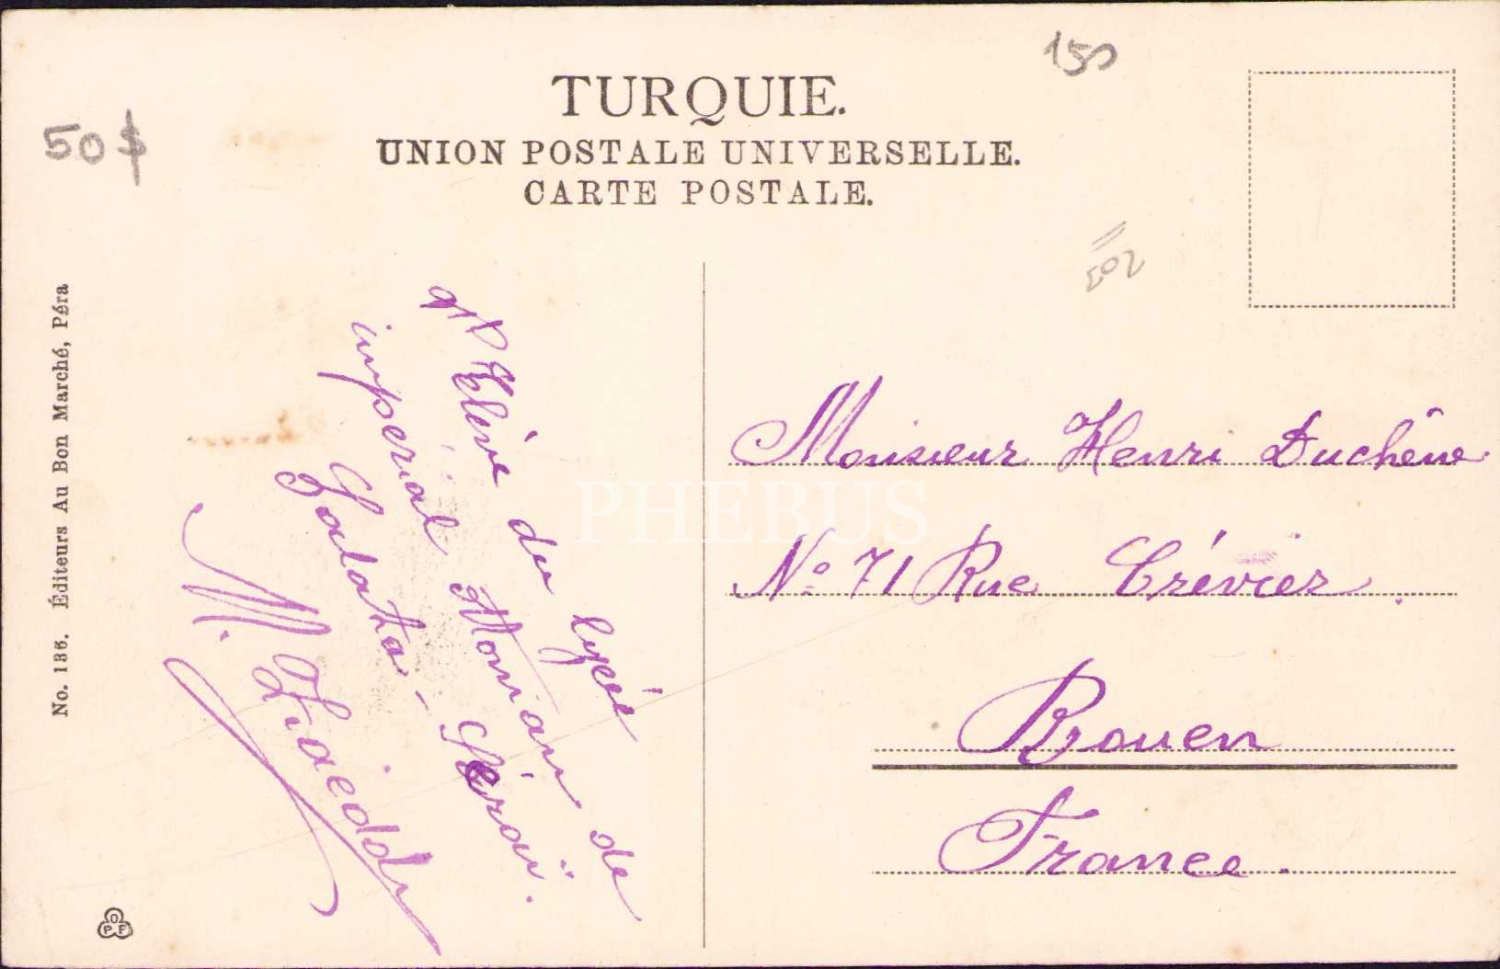 150
TURQUIE.
50$
UNION POSTALE UNIVERSELLE.
CARTE POSTALE.
502
No. 136. Éditeurs Au Bon Marché, Péra
Elève du lycée
impérial Ottoman de
Galata-Séraï.
M. Ziaeddin
Monsieur Henri Duchêne
No 71 Rue Crévier.
Rouen
France.
PHEBUS
OPF